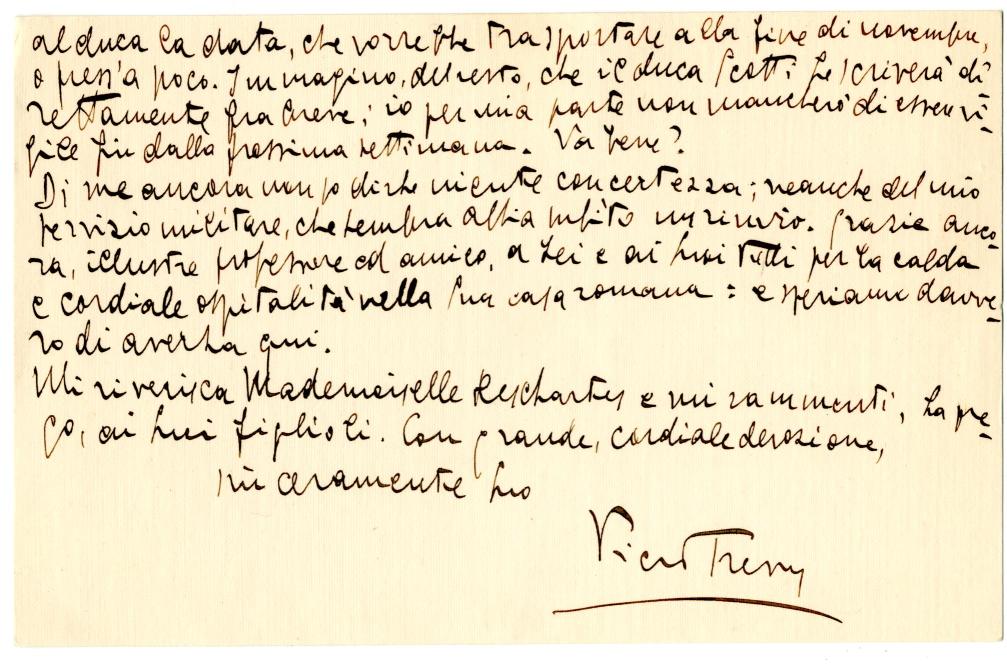 al duca la data, che vorrebbe trasportare alla fine di novembre,
o press'a poco. Immagino, del resto, che il duca Scotti Le scriverà di-
rettamente fra breve; io per mia parte non mancherò di essere vi-
gile fin dalla prossima settimana. Va bene?
Di me ancora non so dirLe niente con certezza; neanche del mio
servizio militare, che sembra abbia subìto un rinvio. Grazie anco-
ra, illustre professore ed amico, a Lei e ai Suoi tutti per la calda
e cordiale ospitalità nella Sua casa romana: e speriamo davve-
ro di averLa qui.
Mi riverisca Mademoiselle e mi rammenti, La pre-
go, ai Suoi figlioli. Con grande, cordiale devozione,
sinceramente Suo